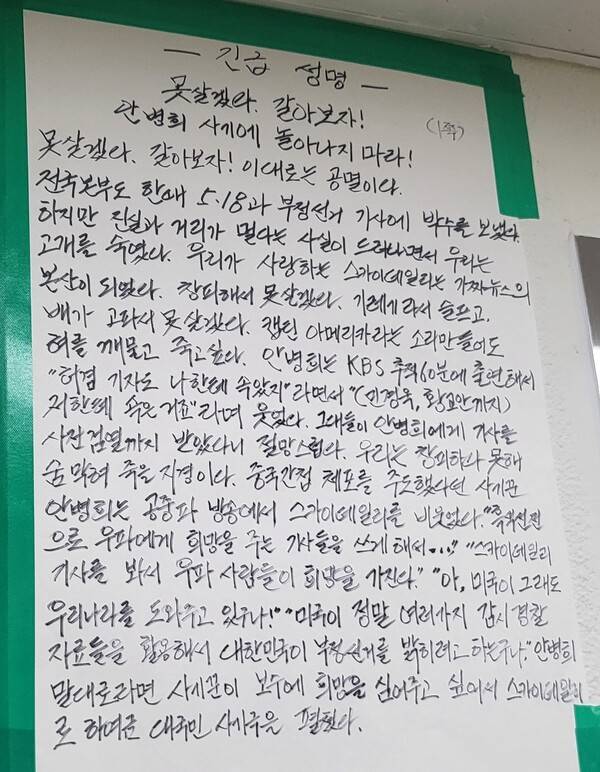 — 긴급 성명 —
못살겠다. 갈아보자!
(1쪽)
안병희 사기에 놀아나지 마라!
못살겠다. 갈아보자! 이대로는 공멸이다.
전국본부도 한때 5.18과 부정선거 기사에 박수를 보냈다.
하지만 진실과 거리가 멀다는 사실이 드러나면서 우리는
고개를 숙였다. 우리가 사랑하는 스카이데일리는 가짜뉴스의
본산이 되었다. 창피해서 못살겠다. 기레기라서 슬프고,
배가 고파서 못살겠다. 캡틴 아메리카라는 소리만들어도
혀를 깨물고 죽고싶다. 안병희는 KBS 추적60분에 출연해서
"허겸 기자도 나한테 속았지"라면서 "(민경욱, 황교안까지)
저한테 속은거죠"라며 웃었다. 그대들이 안병희에게 기사를
사전검열까지 받았다니 절망스럽다. 우리는 창피하다 못해
숨막혀 죽을 지경이다. 중국간첩 체포를 주도했다던 사기꾼
안병희는 공중파 방송에서 스카이데일리를 비웃었다. "흑취선전
으로 우파에게 희망을 주는 기사들을 쓰게 해서...." "스카이데일리
기사를 봐서 우파 사람들이 희망을 가진다." "아, 미국이 그래도
우리나라를 도와주고 있구나!" "미국이 정말 여러가지 감시 경찰
자료들을 활용해서 대한민국이 부정선거를 밝히려고 하는구나." 안병희
말대로라면 사기꾼이 보수에 희망을 심어주고 싶어서 스카이데일리
로 하여금 대국민 사기극을 펼쳤다.